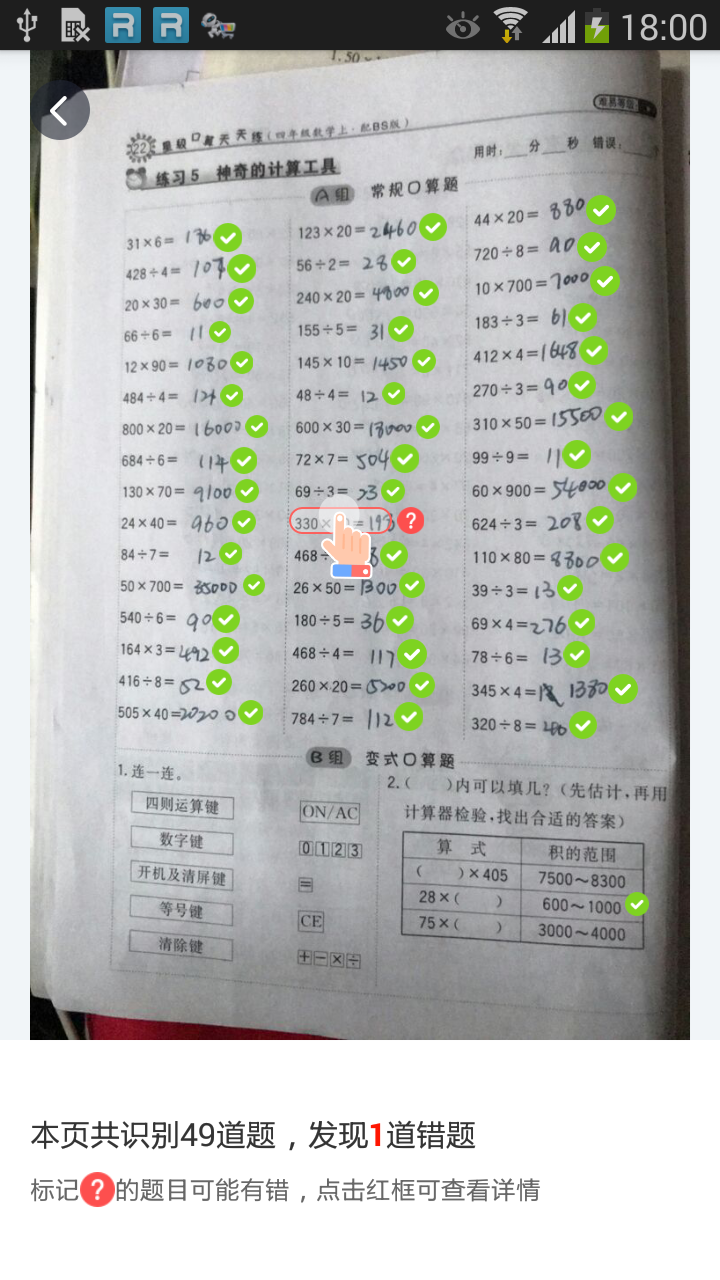 18:00
1.50×
难易等级:
22 星级口算天天练(四年级数学上·配BS版)
练习5 神奇的计算工具
用时:___分___秒 错误:___
A组 常规口算题
31×6= 186
428÷4= 107
20×30= 600
66÷6= 11
12×90= 1080
484÷4= 121
800×20= 16000
684÷6= 114
130×70= 9100
24×40= 960
84÷7= 12
50×700= 35000
540÷6= 90
164×3= 492
416÷8= 52
505×40= 20200
123×20= 2460
56÷2= 28
240×20= 4800
155÷5= 31
145×10= 1450
48÷4= 12
600×30= 18000
72×7= 504
69÷3= 23
330× = 198
468÷
26×50= 1300
180÷5= 36
468÷4= 117
260×20= 5200
784÷7= 112
44×20= 880
720÷8= 90
10×700= 7000
183÷3= 61
412×4= 1648
270÷3= 90
310×50= 15500
99÷9= 11
60×900= 54000
624÷3= 208
110×80= 8800
39÷3= 13
69×4= 276
78÷6= 13
345×4= 1380
320÷8=
B组 变式口算题
1.连一连。
四则运算键
数字键
开机及清屏键
等号键
清除键
ON/AC
0 1 2 3
=
CE
+ − × ÷
2.( )内可以填几?(先估计,再用
计算器检验,找出合适的答案)
算 式 积的范围
( )×405 7500～8300
28×( ) 600～1000
75×( ) 3000～4000
本页共识别49道题，发现1道错题
标记?的题目可能有错，点击红框可查看详情